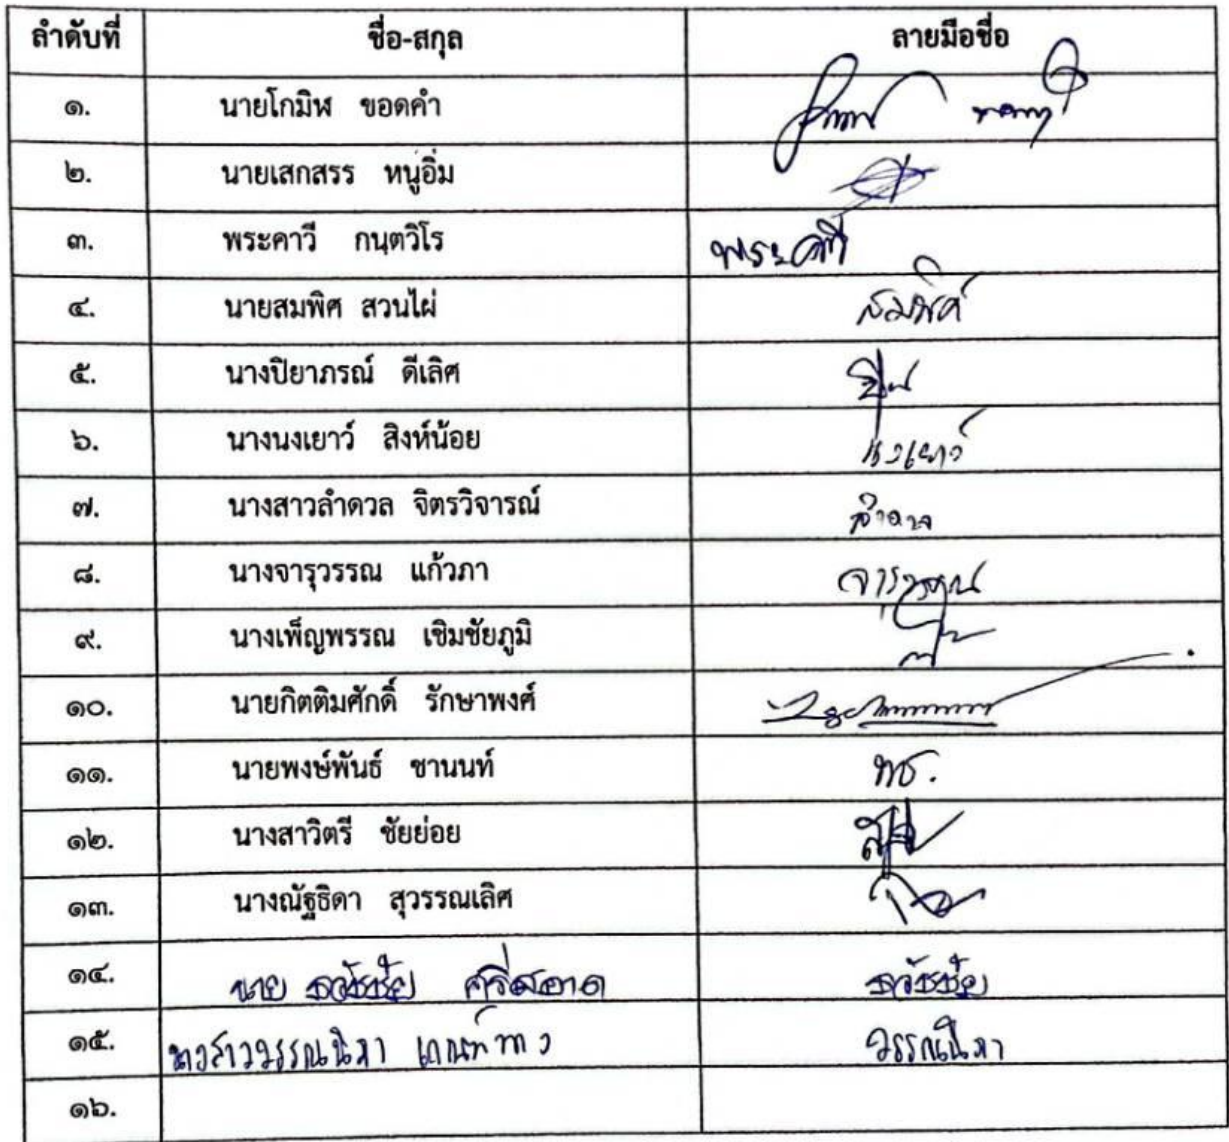 ลำดับที่ ชื่อ-สกุล ลายมือชื่อ
๑. นายโกมิฬ ขอดคำ
๒. นายเสกสรร หนูอิ่ม
๓. พระคาวี กนฺตวิโร พระคาวี
๔. นายสมพิศ สวนไผ่ สมพิศ
๕. นางปิยาภรณ์ ดีเลิศ
๖. นางนงเยาว์ สิงห์น้อย นงเยาว์
๗. นางสาวลำดวล จิตรวิจารณ์ ลำดวล
๘. นางจารุวรรณ แก้วภา จารุวรรณ
๙. นางเพ็ญพรรณ เชิมชัยภูมิ
๑๐. นายกิตติมศักดิ์ รักษาพงศ์
๑๑. นายพงษ์พันธ์ ชานนท์
๑๒. นางสาวิตรี ชัยย่อย
๑๓. นางณัฐธิดา สุวรรณเลิศ
๑๔. นาย ธวัชชัย ศรีสอาด ธวัชชัย
๑๕. นางสาววรรณนิภา วรรณนิภา
๑๖.